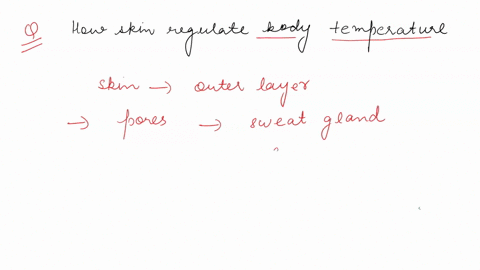 Q How skin regulate body temperature
skin → outer layer
→ pores → sweat gland